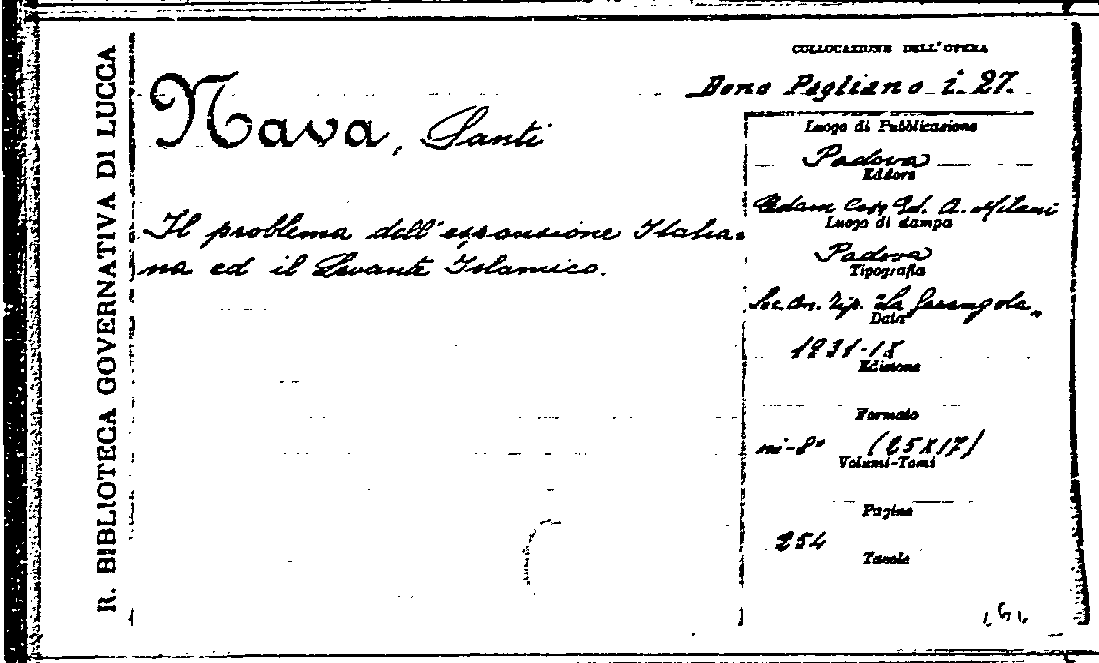 R. BIBLIOTECA GOVERNATIVA DI LUCCA
COLLOCAZIONE DELL'OPERA
Dono Pagliano i. 27.
Nava, Santi
Il problema dell'espansione Italia-
na ed il Levante Islamico.
Luogo di Pubblicazione
Padova
Editore
Cedam Casa Ed. A. Milani
Luogo di stampa
Padova
Tipografia
Soc. An. Tip. "La Garangola"
Data
1931-IX
Edizione
Formato
in-8° (25X17)
Volumi-Tomi
Pagine
254
Tavole